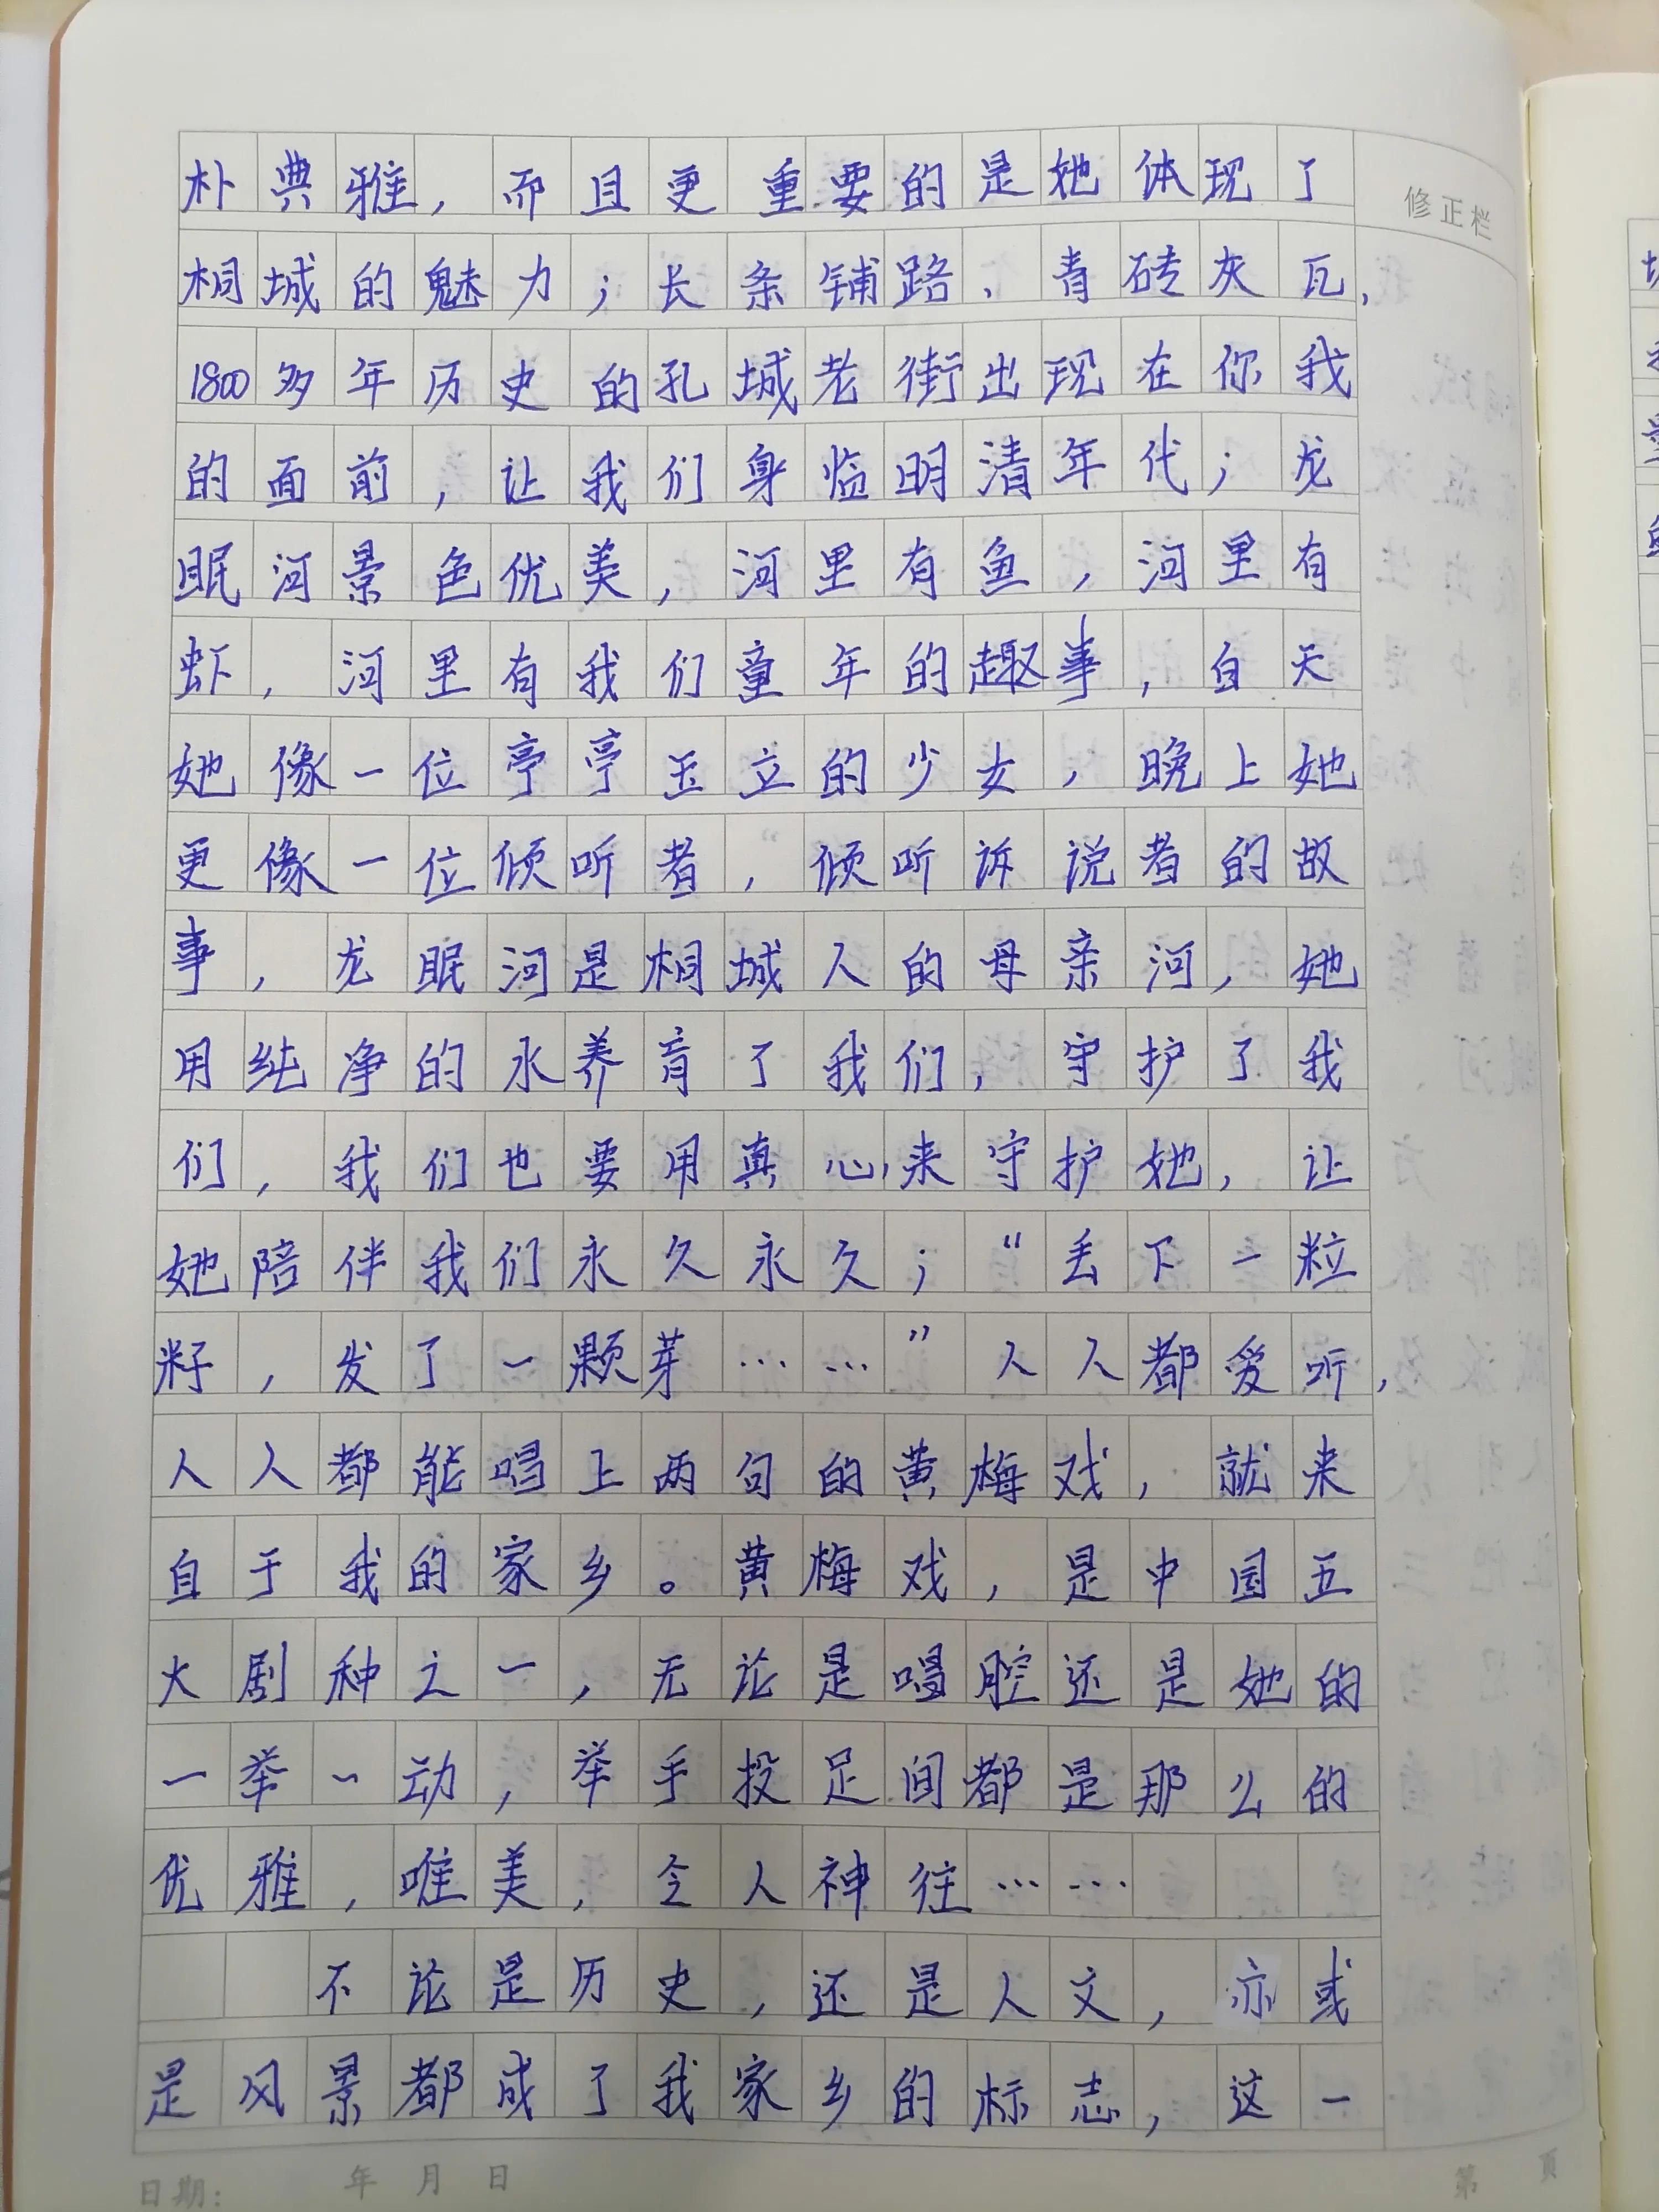 朴典雅，而且更重要的是她体现了
桐城的魅力；长条铺路、青砖灰瓦，
1800多年历史的孔城老街出现在你我
的面前，让我们身临明清年代；龙
眠河景色优美，河里有鱼，河里有
虾，河里有我们童年的趣事，白天
她像一位亭亭玉立的少女，晚上她
更像一位倾听者，倾听诉说者的故
事，龙眠河是桐城人的母亲河，她
用纯净的水养育了我们，守护了我
们，我们也要用真心来守护她，让
她陪伴我们永久永久；“丢下一粒
籽，发了一颗芽……”人人都爱听，
人人都能唱上两句的黄梅戏，就来
自于我的家乡。黄梅戏，是中国五
大剧种之一，无论是唱腔还是她的
一举一动，举手投足间都是那么的
优雅，唯美，令人神往……
不论是历史，还是人文，亦或
是风景都成了我家乡的标志，这一
修正栏
日期： 年 月 日
第 页